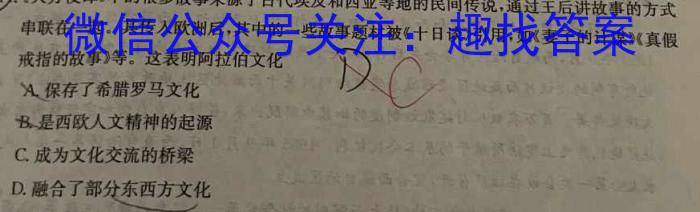 的很多故事来源于古代埃及和西亚等地的民间传说,通过王后讲故事的方式
串联在一起。其传入欧洲后,其中的一些故事题材被《十日谈》引用,如《妻子的计谋》《真假
微信公众号关注:趣找答案
戒指的故事》等。这表明阿拉伯文化
D C
A. 保存了希腊罗马文化
B. 是西欧人文精神的起源
C. 成为文化交流的桥梁
D. 融合了部分东西方文化